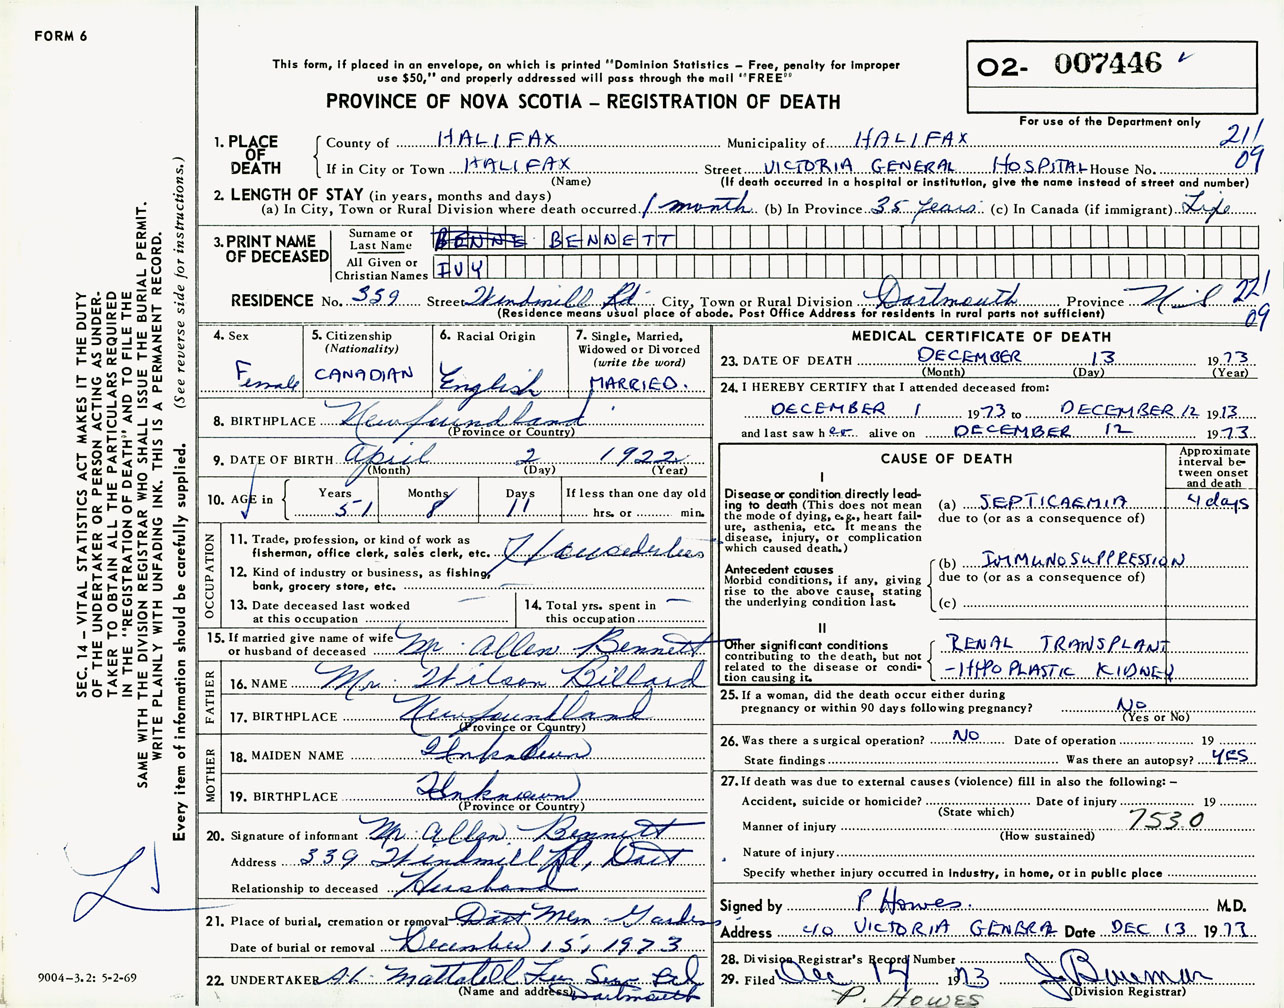 FORM 6
This form, if placed in an envelope, on which is printed "Dominion Statistics – Free, penalty for improper
use $50," and properly addressed will pass through the mail "FREE"
PROVINCE OF NOVA SCOTIA – REGISTRATION OF DEATH
O2- 007446
For use of the Department only
1. PLACE OF DEATH
County of HALIFAX Municipality of HALIFAX 21/
If in City or Town HALIFAX Street VICTORIA GENERAL HOSPITAL House No. 09
(Name) (If death occurred in a hospital or institution, give the name instead of street and number)
2. LENGTH OF STAY (in years, months and days)
(a) In City, Town or Rural Division where death occurred. 1 month (b) In Province 35 years (c) In Canada (if immigrant) Life
3. PRINT NAME OF DECEASED
Surname or Last Name BENNE BENNETT
All Given or Christian Names IVY
RESIDENCE No. 339 Street Windmill Rd City, Town or Rural Division Dartmouth Province N.S. 22/
(Residence means usual place of abode. Post Office Address for residents in rural parts not sufficient) 09
4. Sex
Female
5. Citizenship
(Nationality)
CANADIAN
6. Racial Origin
English
7. Single, Married,
Widowed or Divorced
(write the word)
MARRIED.
8. BIRTHPLACE Newfoundland
(Province or Country)
9. DATE OF BIRTH April 2 1922
(Month) (Day) (Year)
10. AGE in
Years 51
Months 8
Days 11
If less than one day old
hrs. or min.
OCCUPATION
11. Trade, profession, or kind of work as
fisherman, office clerk, sales clerk, etc.
12. Kind of industry or business, as fishing,
bank, grocery store, etc.
13. Date deceased last worked
at this occupation —
14. Total yrs. spent in
this occupation —
15. If married give name of wife
or husband of deceased Mr. Allen Bennett
FATHER
16. NAME Mr. Wilson Billard
17. BIRTHPLACE Newfoundland
(Province or Country)
MOTHER
18. MAIDEN NAME Unknown
19. BIRTHPLACE Unknown
(Province or Country)
20. Signature of informant Mr. Allen Bennett
Address 339 Windmill Rd, Dart
Relationship to deceased Husband
21. Place of burial, cremation or removal Dart Mem. Gardens
Date of burial or removal December 15, 1973
22. UNDERTAKER A.L. Mattatall Fun Ser Ltd
(Name and address) Dartmouth
MEDICAL CERTIFICATE OF DEATH
23. DATE OF DEATH DECEMBER 13 1973
(Month) (Day) (Year)
24. I HEREBY CERTIFY that I attended deceased from:
DECEMBER 1 1973 to DECEMBER 12 1973
and last saw her alive on DECEMBER 12 1973
CAUSE OF DEATH
Approximate
interval be-
tween onset
and death
I
Disease or condition directly lead-
ing to death (This does not mean
the mode of dying, e.g., heart fail-
ure, asthenia, etc. It means the
disease, injury, or complication
which caused death.)
(a) SEPTICAEMIA 4 days
due to (or as a consequence of)
Antecedent causes
Morbid conditions, if any, giving
rise to the above cause, stating
the underlying condition last.
(b) IMMUNOSUPPRESSION
due to (or as a consequence of)
(c)
II
Other significant conditions
contributing to the death, but not
related to the disease or condi-
tion causing it.
RENAL TRANSPLANT
- HYPOPLASTIC KIDNEY
25. If a woman, did the death occur either during
pregnancy or within 90 days following pregnancy? NO
(Yes or No)
26. Was there a surgical operation? NO Date of operation 19
State findings Was there an autopsy? YES
27. If death was due to external causes (violence) fill in also the following: –
Accident, suicide or homicide? Date of injury 19
(State which)
Manner of injury 7530
(How sustained)
Nature of injury
Specify whether injury occurred in industry, in home, or in public place
Signed by P Howes. M.D.
Address C/O VICTORIA GENERAL Date DEC 13 1973
28. Division Registrar's Record Number
29. Filed Dec 14 1973
(Division Registrar)
P. HOWES
SEC. 14 – VITAL STATISTICS ACT MAKES IT THE DUTY
OF THE UNDERTAKER OR PERSON ACTING AS UNDER-
TAKER TO OBTAIN ALL THE PARTICULARS REQUIRED
IN THE "REGISTRATION OF DEATH" AND TO FILE THE
SAME WITH THE DIVISION REGISTRAR WHO SHALL ISSUE THE BURIAL PERMIT.
WRITE PLAINLY WITH UNFADING INK. THIS IS A PERMANENT RECORD.
Every item of information should be carefully supplied. (See reverse side for instructions.)
9004–3.2: 5-2-69